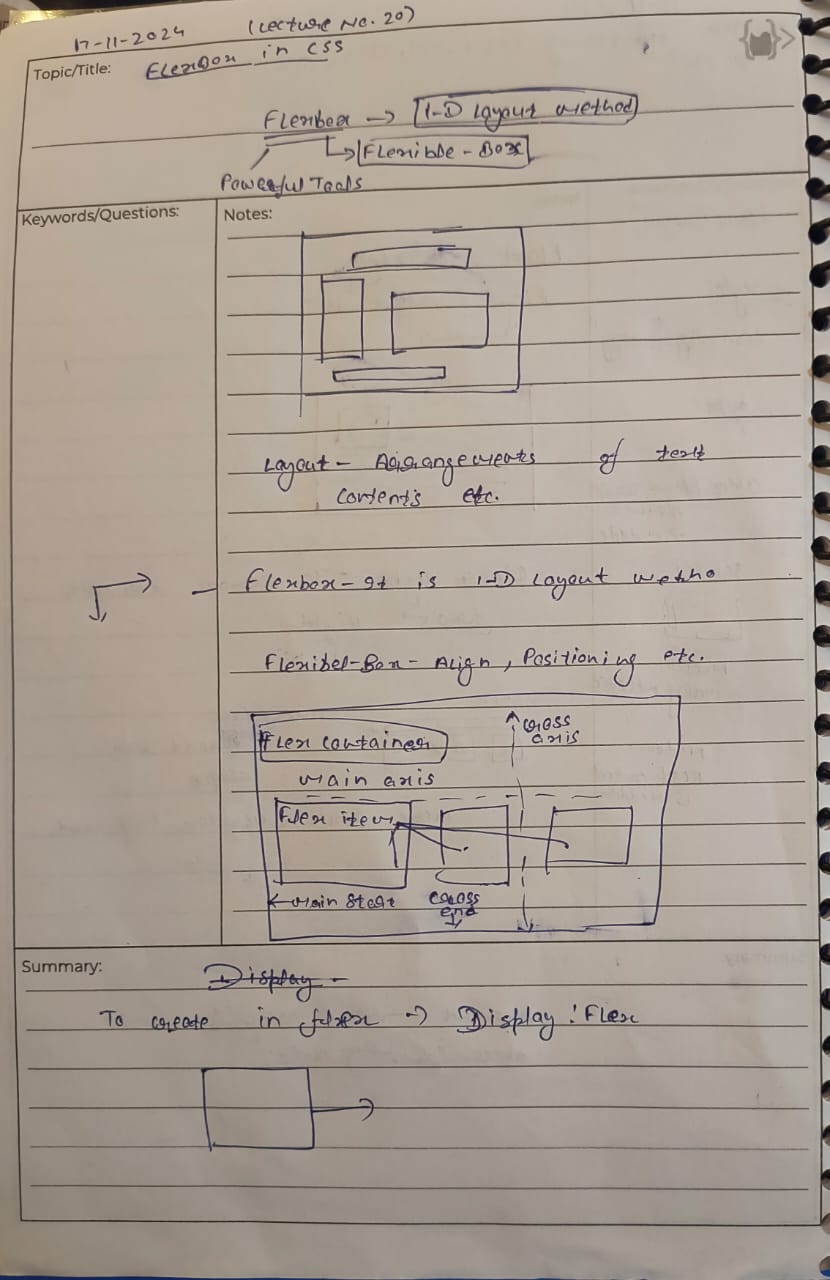 17-11-2024 (Lecture No. 20)
Topic/Title: FlexBox in CSS
Flexbox → 1-D Layout method
↳ Flexible - Box
Powerful Tools
Keywords/Questions:
Notes:
Layout - Arrangements of text
contents etc.
- Flexbox - It is 1-D Layout metho
Flexibel-Box - Align, Positioning etc.
Flex container
cross
axis
main axis
Flex item
← main start
cross
end
Summary:
Display -
To create in flex → Display : Flex